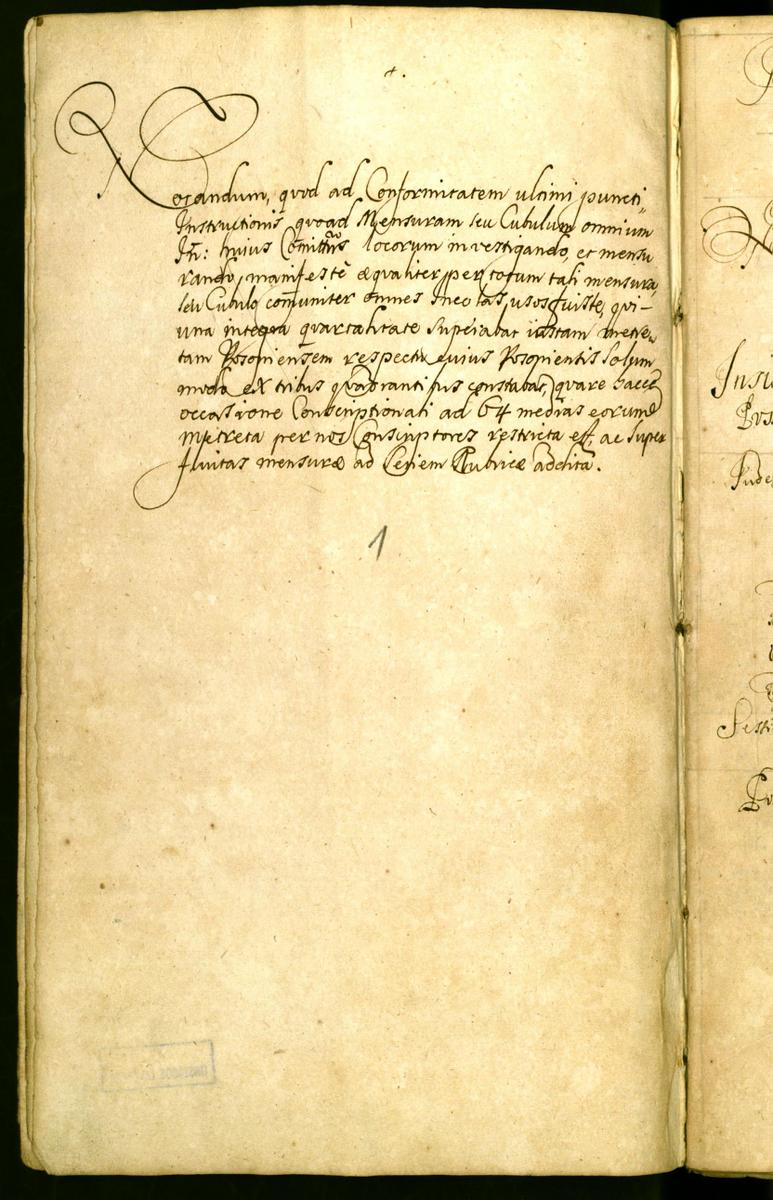 Notandum, quod ad Conformitatem ultimi puncti
Instructionis quoad Mensuram seu Cubulum omnium
huius Comittus locorum investigando, et mensu
rando, manifestè æqualiter per totum tali mensura,
seu Cubulo com̄uniter omnes Incolas usos fuisse, qui
una integra quartalitate Superabat iustam metre
tam Posoniensem respectu cuius Posonientis solum
modo ex tribus quadrantibus constabat, quare hacce
occasione Conscriptionali ad 64 medias eorund
metreta per nos Conscriptores restricta est, ac Super
fluitas mensuræ ad Seriem Rubricæ addita.
1
Insti
Pos
Jude
Sessi
Po